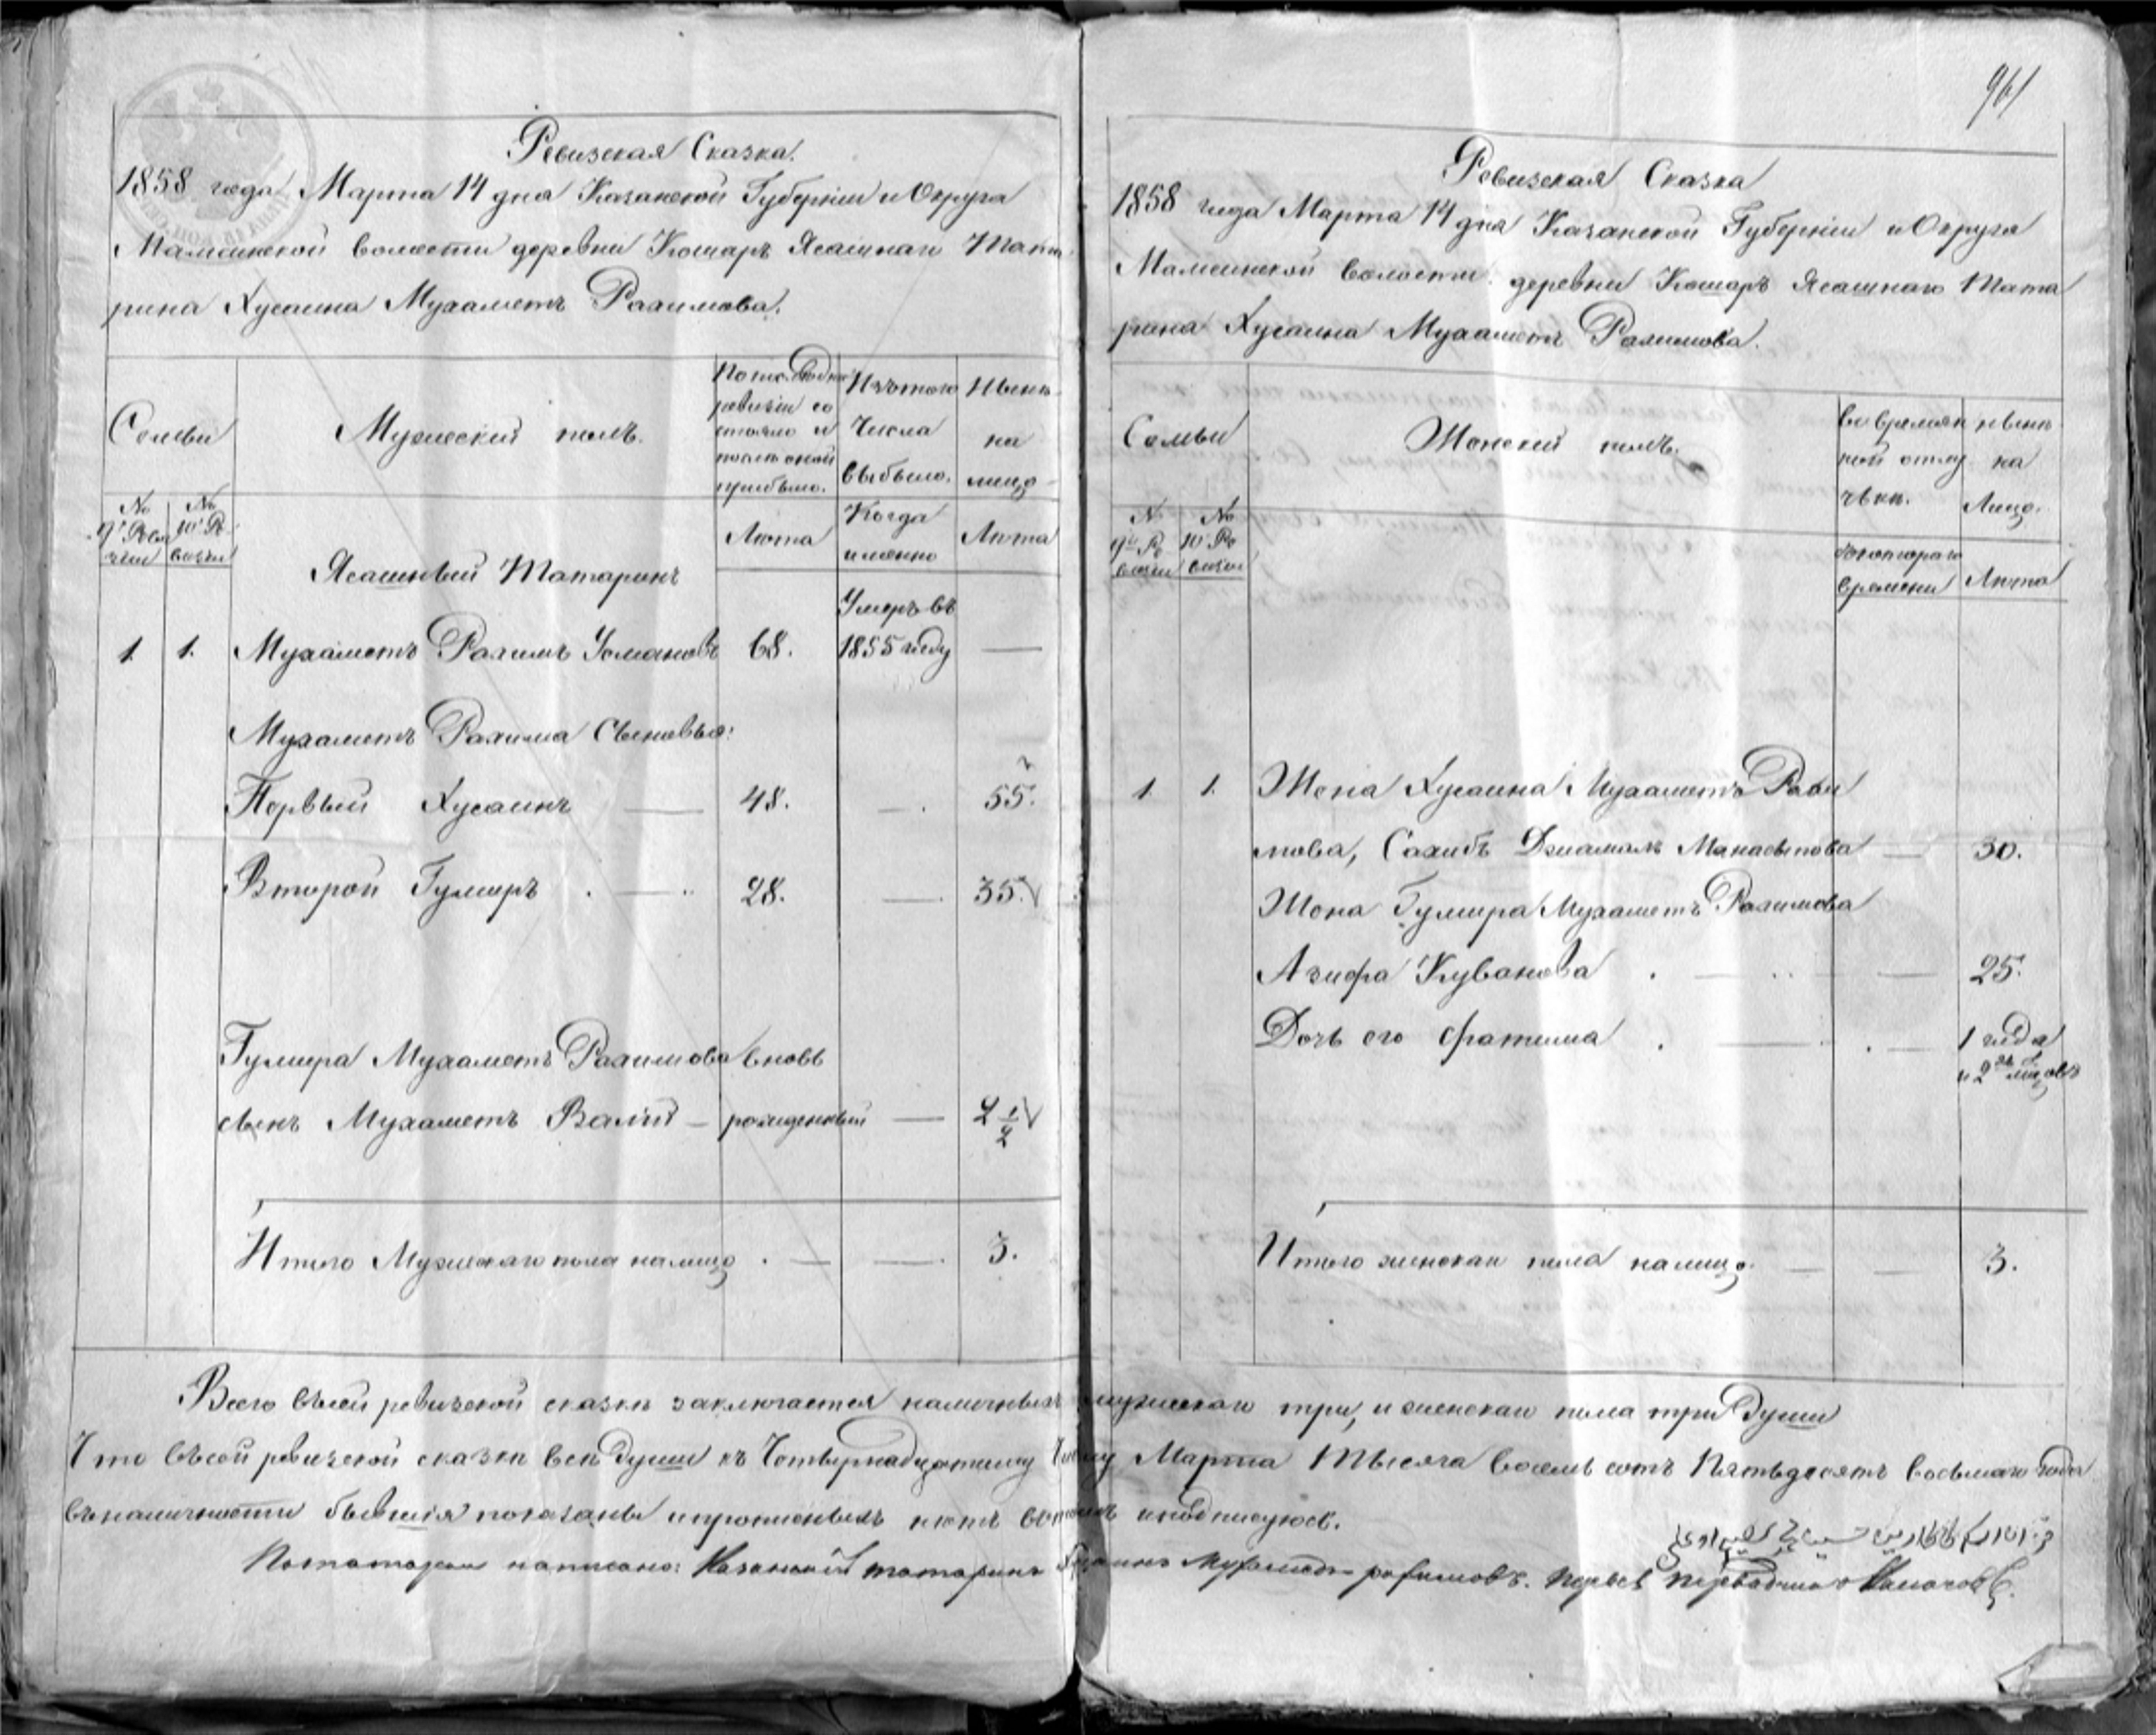 961
Ревизская Сказка.
1858 года Марта 14 дня Казанской Губерніи и Округа
Мамсинской волости деревни Кошаръ Ясашнаго Тата
рина Хусаина Мухаметъ Рахимова.
Семьи
Мужеский полъ.
По последней
ревизіи со
стояло и
после оной
прибыло.
Изътого
Числа
выбыло.
Ныне
на
лицо
№
9й Реви
зіи
№
10й Ре
визіи
Лета
Когда
именно
Лета
Ясашный Татаринъ
1. 1. Мухаметъ Рахимъ Усмановъ 68. Умеръ въ
1855 году —
Мухаметъ Рахима Сыновья:
Первый Хусаинъ — 48. —. 55.
Второй Гумеръ . — 28. —. 35.
Гумера Мухаметъ Рахимова вновь
сынъ Мухаметъ Валий — рожденный — 2 1/2
Итого Мужескаго пола налицо . — —. 3.
Ревизская Сказка
1858 года Марта 14 дня Казанской Губерніи и Округа
Мамсинской Волости деревни Кошаръ Ясашнаго Тата
рина Хусаина Мухаметъ Рахимова.
Семьи
Женский полъ.
Во времян
ной отлу
чке.
ныне
на
Лицо.
№
9й Ре
визіи
№
10й Ре
визіи
Скотораго
времени
Лета
1. 1. Жена Хусаина Мухаметъ Рахи
мова, Сахибъ Джамалъ Манасыпова — 30.
Жена Гумера Мухаметъ Рахимова
Азифа Куванова . — — 25.
Дочь его Фатима . — . — 1 года
и 2хъ м цовъ
Итого женскаго пола налицо. — — 3.
Всего въсей ревизской сказке заключается наличныхъ мужескаго три, и женскаго пола три Души
Что въсей ревизской сказки все Души къ Четырнадцатому Числу Марта Тысяча восемь сотъ Пятьдесятъ восьмаго года
въналичности бывшія показаны ипрописныхъ нетъ вътомъ иподписуюсь.
Потатарски написано: Казанской татаринъ Хусаинъ Мухаметъ рахимовъ. Перевелъ Переводчикъ